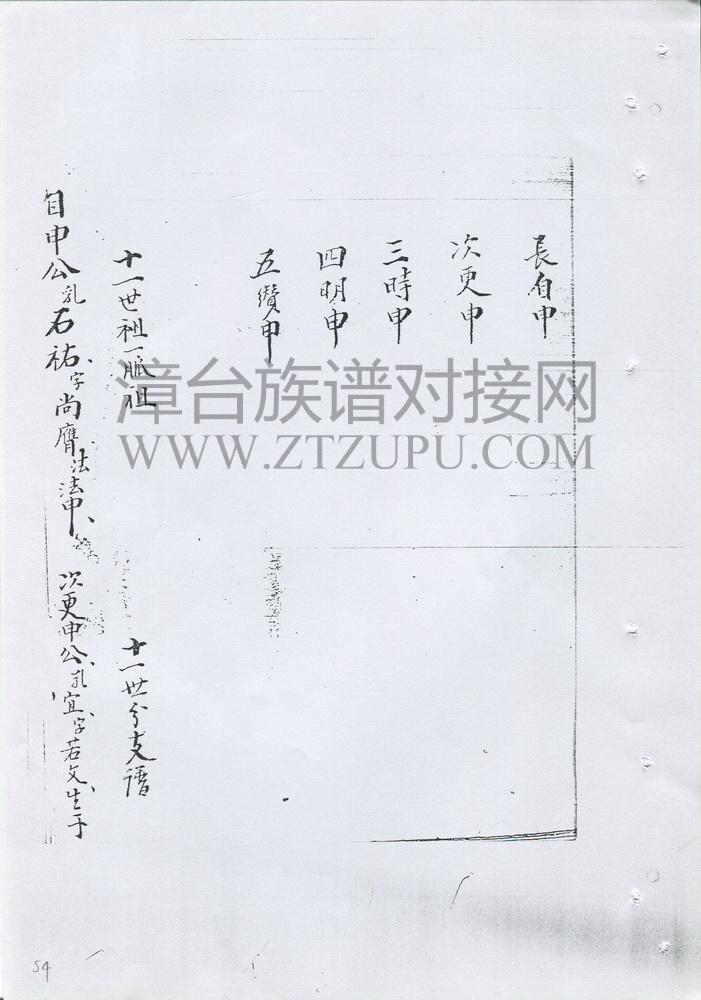 長自申
次更申
三時申
四明申
五纘申
十一世祖一脈祖
十一世分支譜
自申公乳石祐字尚膺法法申
次更申公乳宜字若文生于
漳台族谱对接网
WWW.ZTZUPU.COM
54